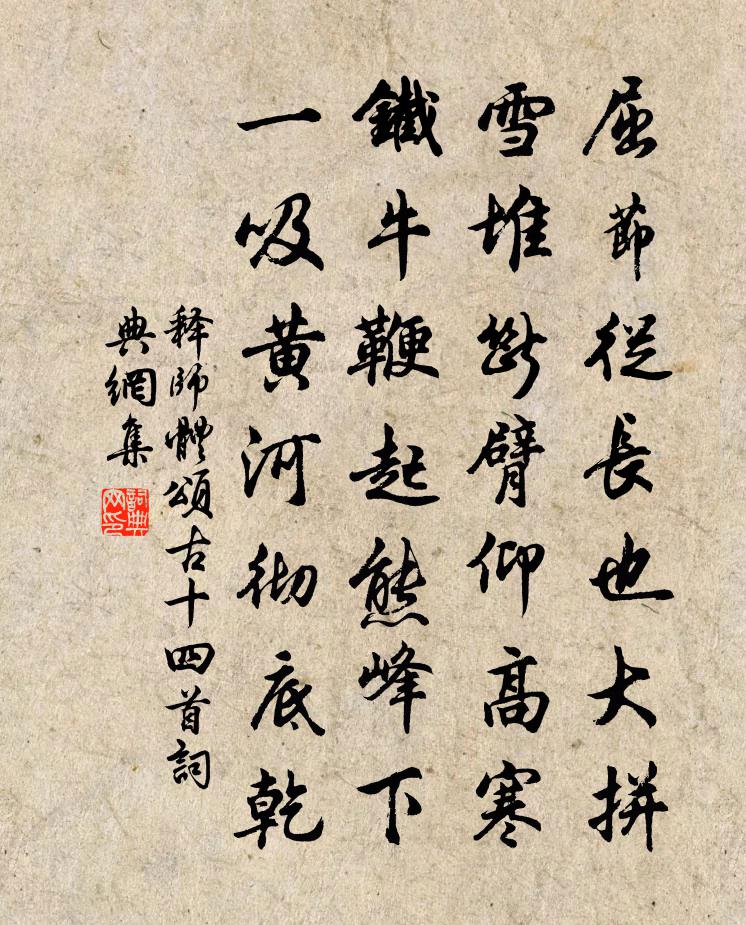 屈節從長也大拼
雪堆斷臂仰高寒
鐵牛鞭起熊峰下
一吸黄河彻底乾
释師體頌古十四首詞
典網集
詞典网印